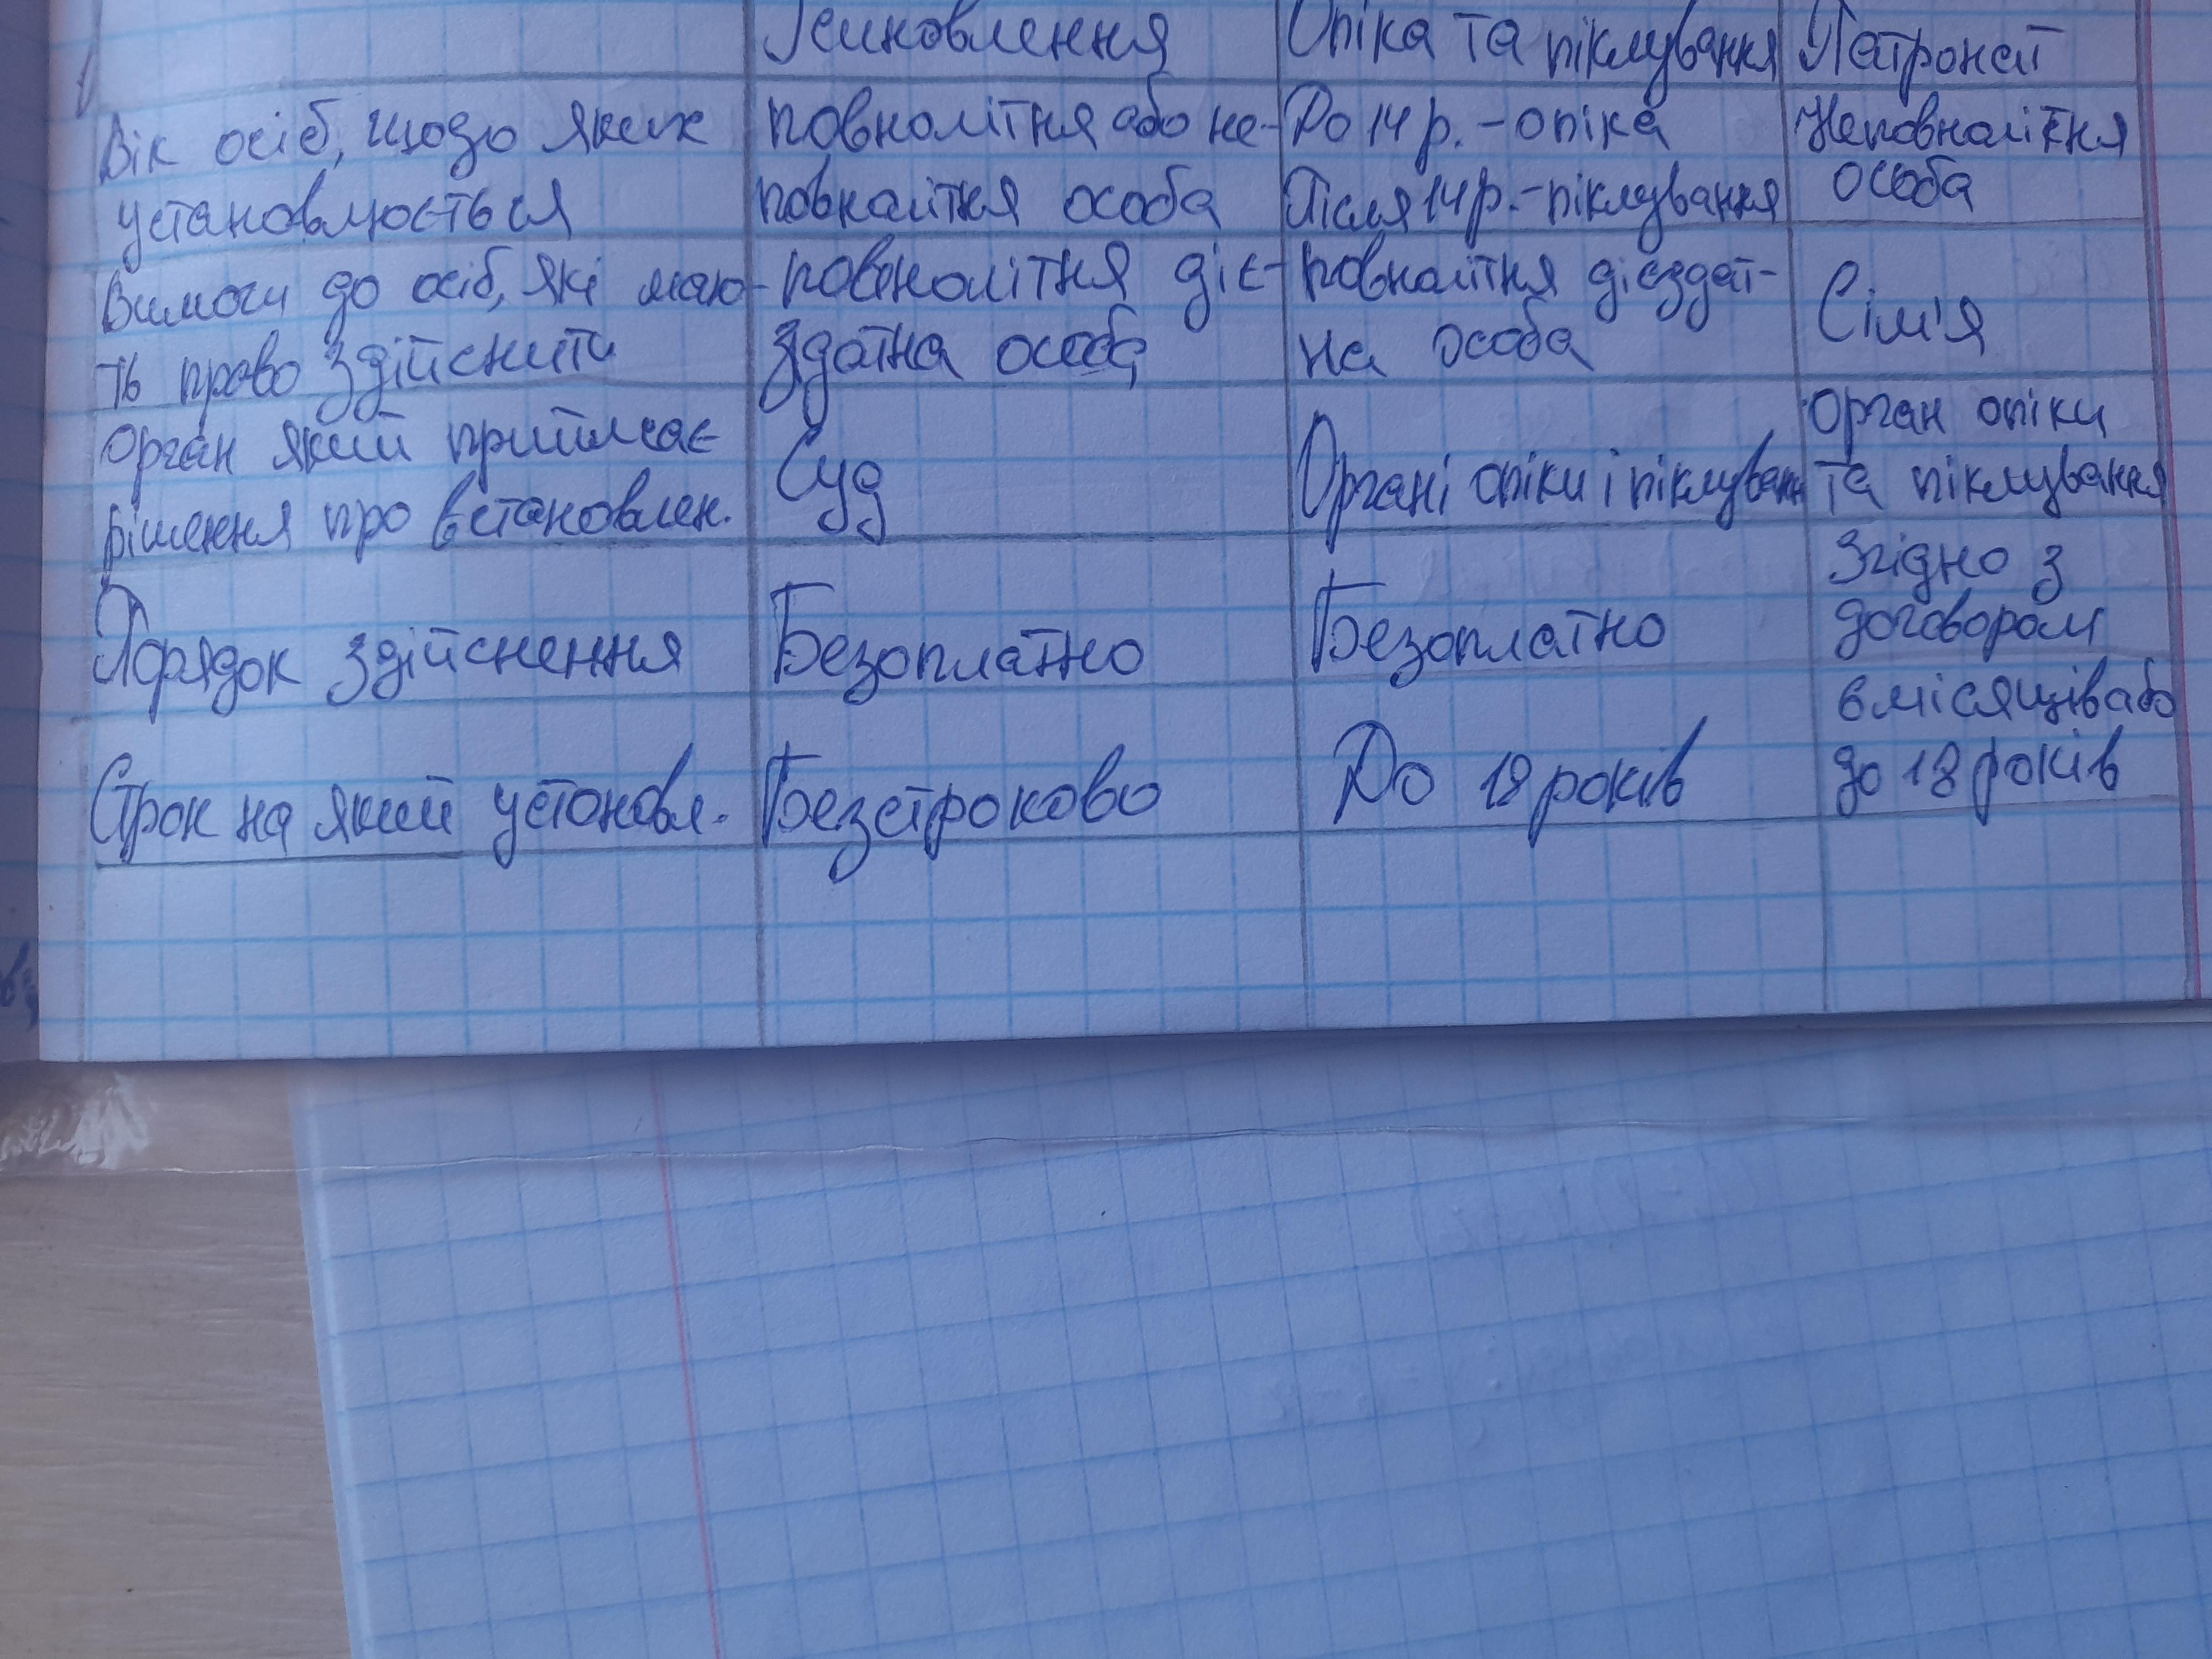 Усиновлення Опіка та піклування Патронат
Вік осіб, щодо яких повнолітня або не- До 14 р. - опіка Неповнолітня
установлюється повнолітня особа Після 14 р. - піклування особа
Вимоги до осіб, які маю- повнолітня діє- повнолітня дієздат- Сім'я
ть право здійснити здатна особа на особа
Орган який приймає Суд Органі опіки і піклуванн Орган опіки
рішення про встановлен. та піклування
Порядок здійснення Безоплатно Безоплатно Згідно з
договором
Строк на який установл. Безстроково До 18 років 6 місяців або
до 18 років